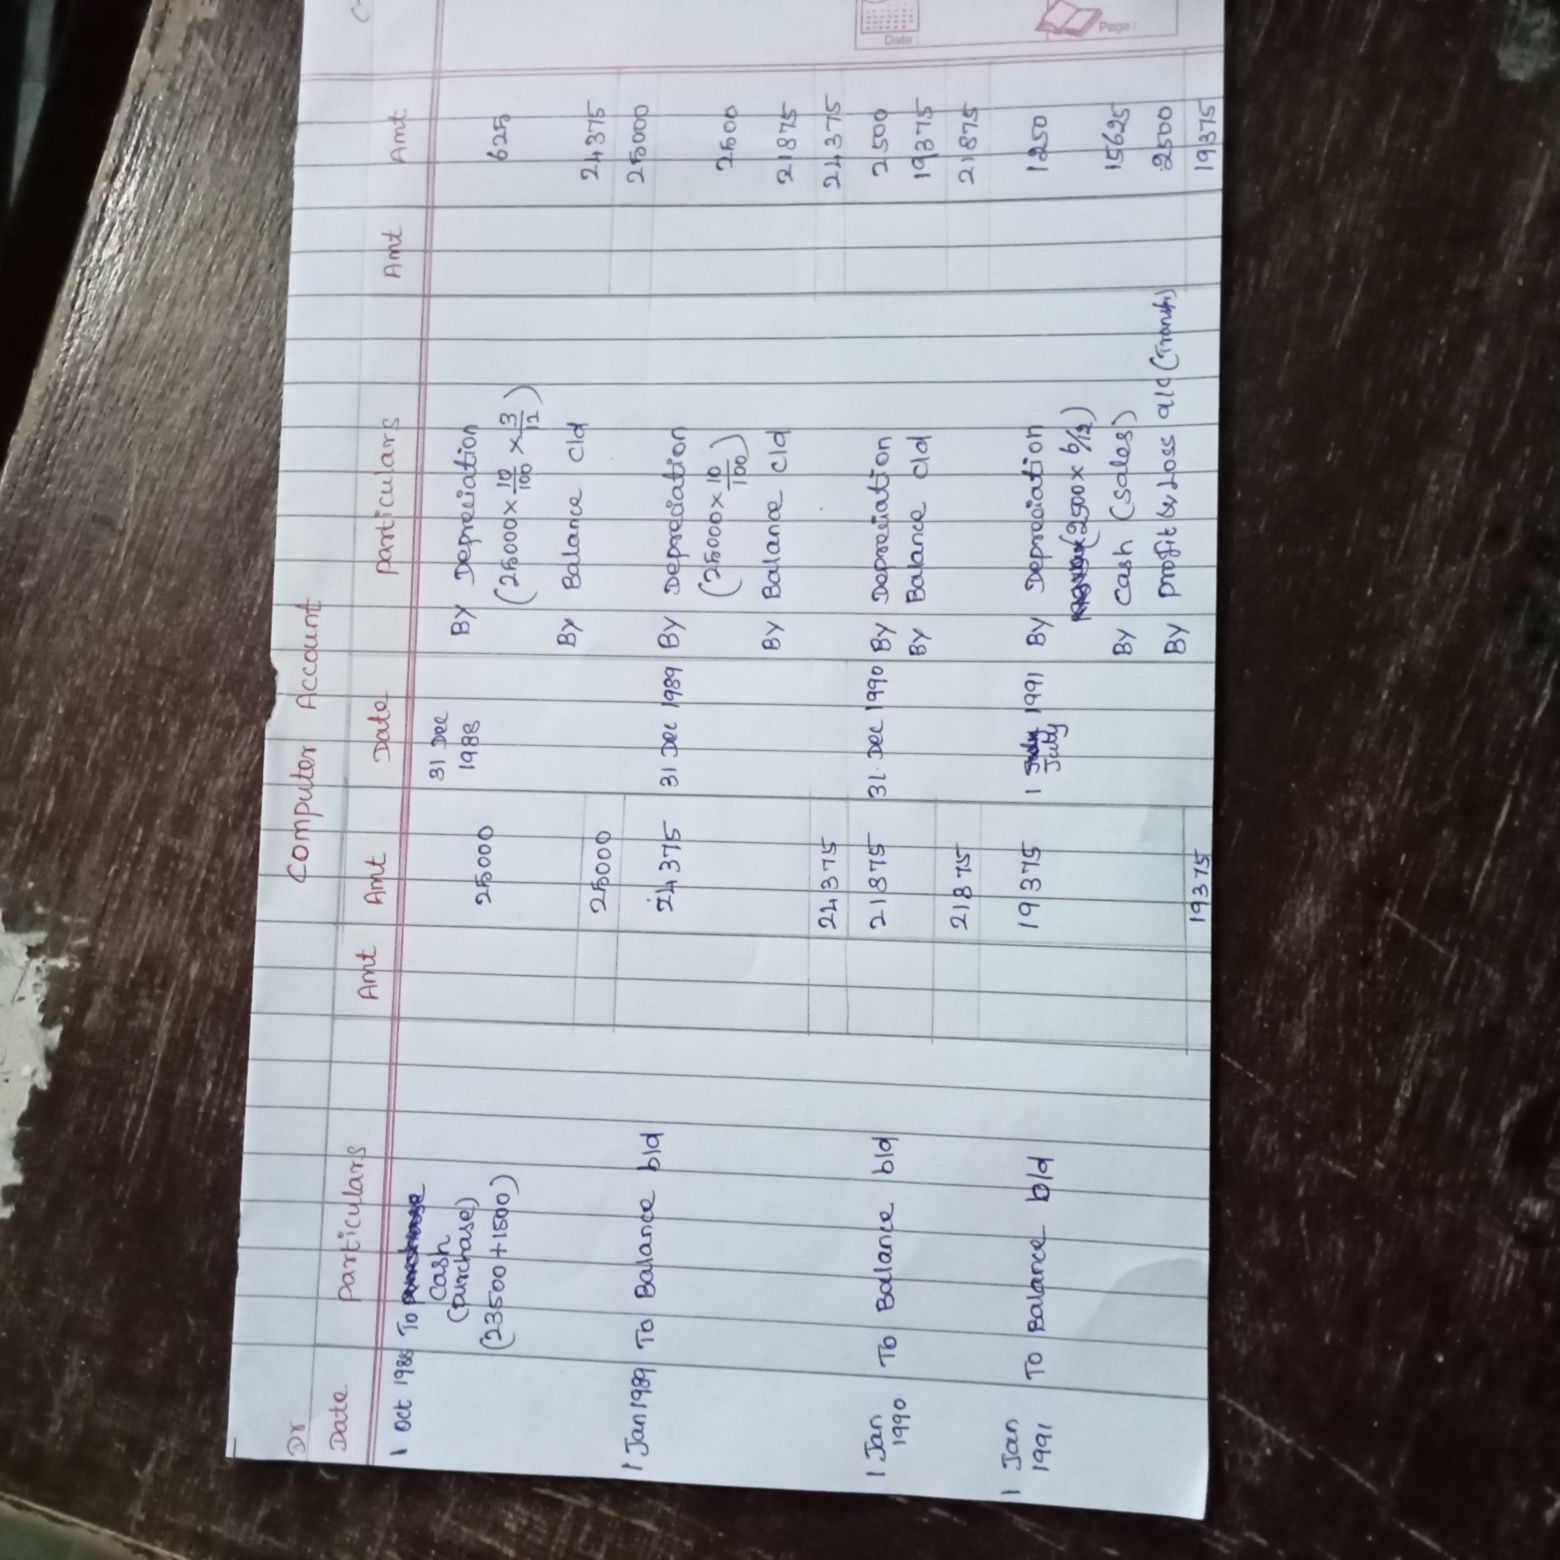 Computer Account
Dr
Date Particulars Amt Amt Date Particulars Amt Amt
1 Oct 1988 To Cash 25000 31 Dec 1988 By Depreciation 625
(purchase) (25000 × 10/100 × 3/12)
(23500+1500) By Balance c/d 24375
25000 25000
1 Jan 1989 To Balance b/d 24375 31 Dec 1989 By Depreciation 2500
(25000 × 10/100)
By Balance c/d 21875
24375 24375
1 Jan 1990 To Balance b/d 21875 31 Dec 1990 By Depreciation 2500
By Balance c/d 19375
21875 21875
1 Jan 1991 To Balance b/d 19375 1 July 1991 By Depreciation 1250
(2500 × 6/12)
By Cash (sales) 15625
By profit & Loss a/c 2500
19375 19375
Date :
Page :